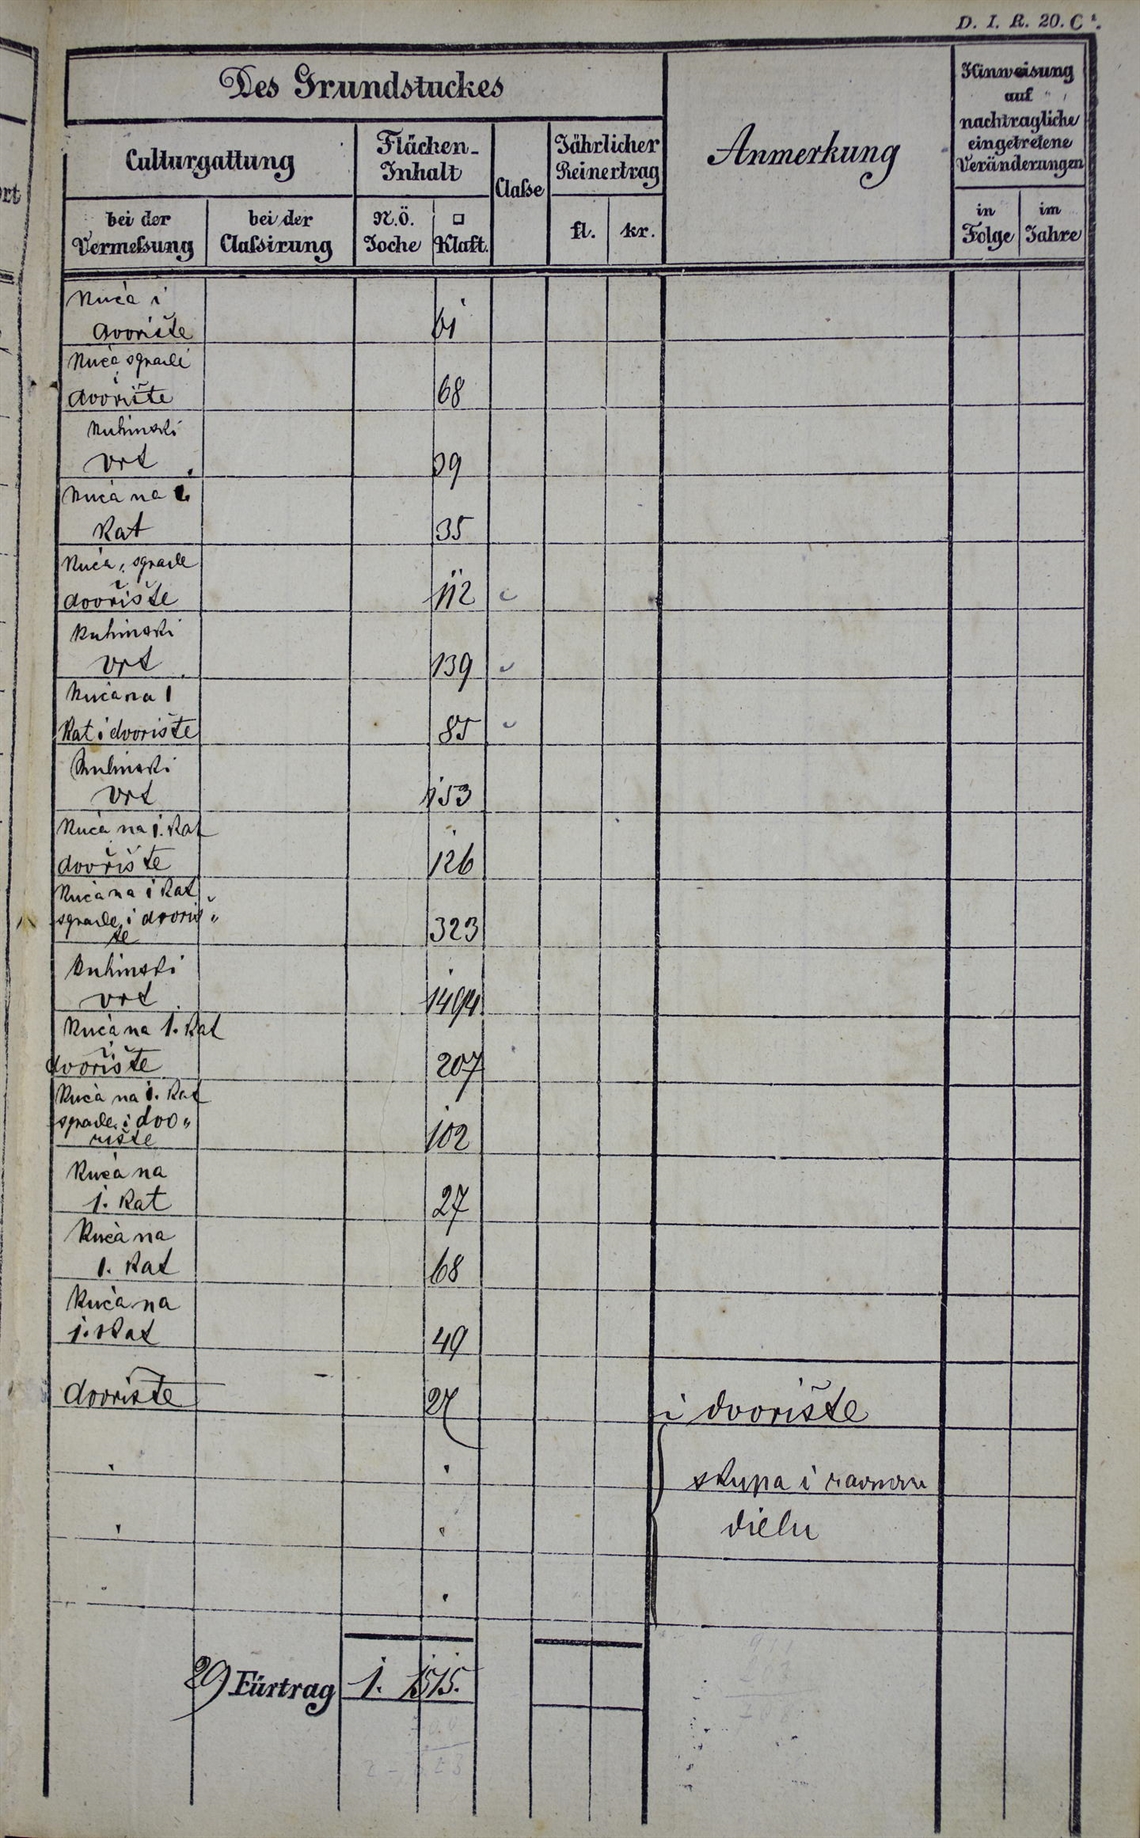 D. I. R. 20. C¹.
Des Grundstuckes
Culturgattung
Flächen-
Inhalt
Claſse
Jährlicher
Reinertrag
Anmerkung
Hinweisung
auf
nachtragliche
eingetretene
Veränderungen
bei der
Vermeſsung
bei der
Claſsirung
N.Ö.
Joche
□
Klaft.
fl.
kr.
in
Folge
im
Jahre
Kuća i
dvorište 61
Kuća sgrade
i
dvorište 68
Kuhinski
vrt 39
Kuća na 1.
Kat 35
Kuća, sgrade
i
dvorište 112
Kuhinski
vrt 139
Kuća na 1
Kat i dvorište 85
Kuhinski
vrt 153
Kuća na 1. Kat
i
dvorište 126
Kuća na 1 Kat
sgrade i dvoriš„
te 323
Kuhinski
vrt 1494
Kuća na 1. Kat
i
dvorište 207
Kuća na 1. Kat
sgrade i dvo„
rište 102
Kuća na
1. Kat 27
Kuća na
1. Kat 68
Kuća na
1. Kat 49
dvorište 27 i dvorište
skupa i
dielu
29 Fürtrag 1. 1515.